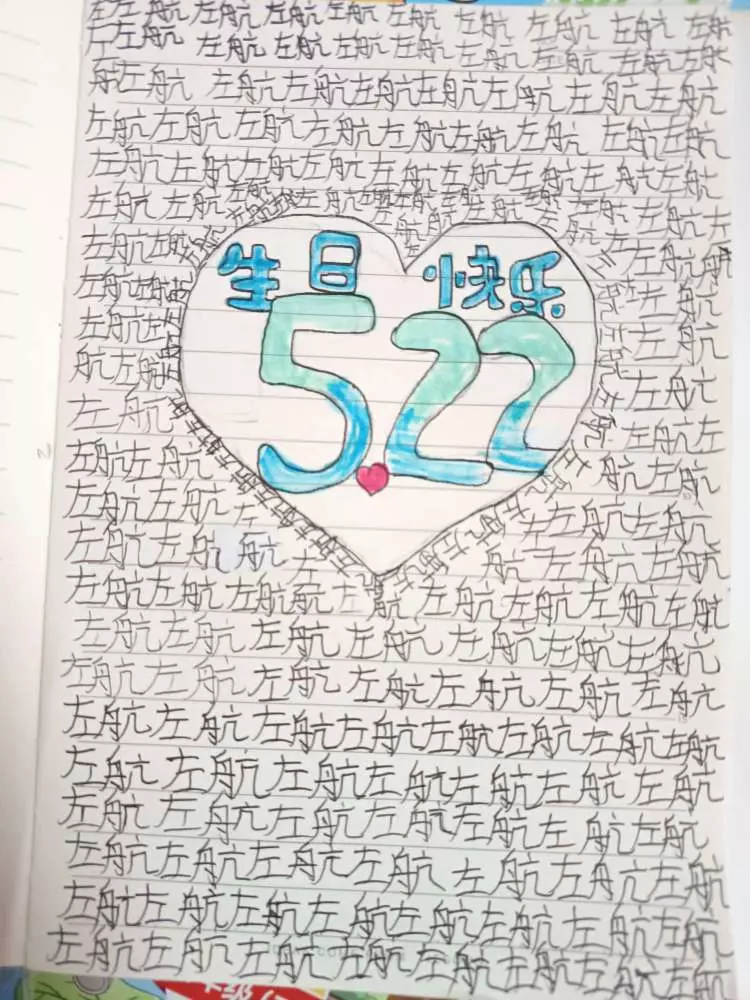 左左航 左航 左航 左航 左航 左航 左航 左航 左航
左航 左航 左航 左航 左航 左航 左航 左航左航
航左航 左航左航左航左航左航左航左航
左航左航 左航左航左航左航左航 左航左航
左航左航左航左航左航左航左航左航左航
左航左航左航左航左航左航左航左
左航左航
生日 快乐
左航左航
5.22
左航左 左航
航左航 左航
左航 左航左
左航左航 航左航
左航左航 左航左航
左航左航航 左航左航
左航左航左航航左航 左航左航左航左航
左航左航 左航 左航 左航左航左航
左航左航 左航 左航左航 左航 左航
左航左航 左航左航左航左航左航左航
左航 左航 左航左航左航左航 左航
左航 左航左航左航左航左航 左航
左航左航左航左航 左航左航左航
左航左航 左航左航左航左航左航左航
左航左航 左航 左航左航左航左航